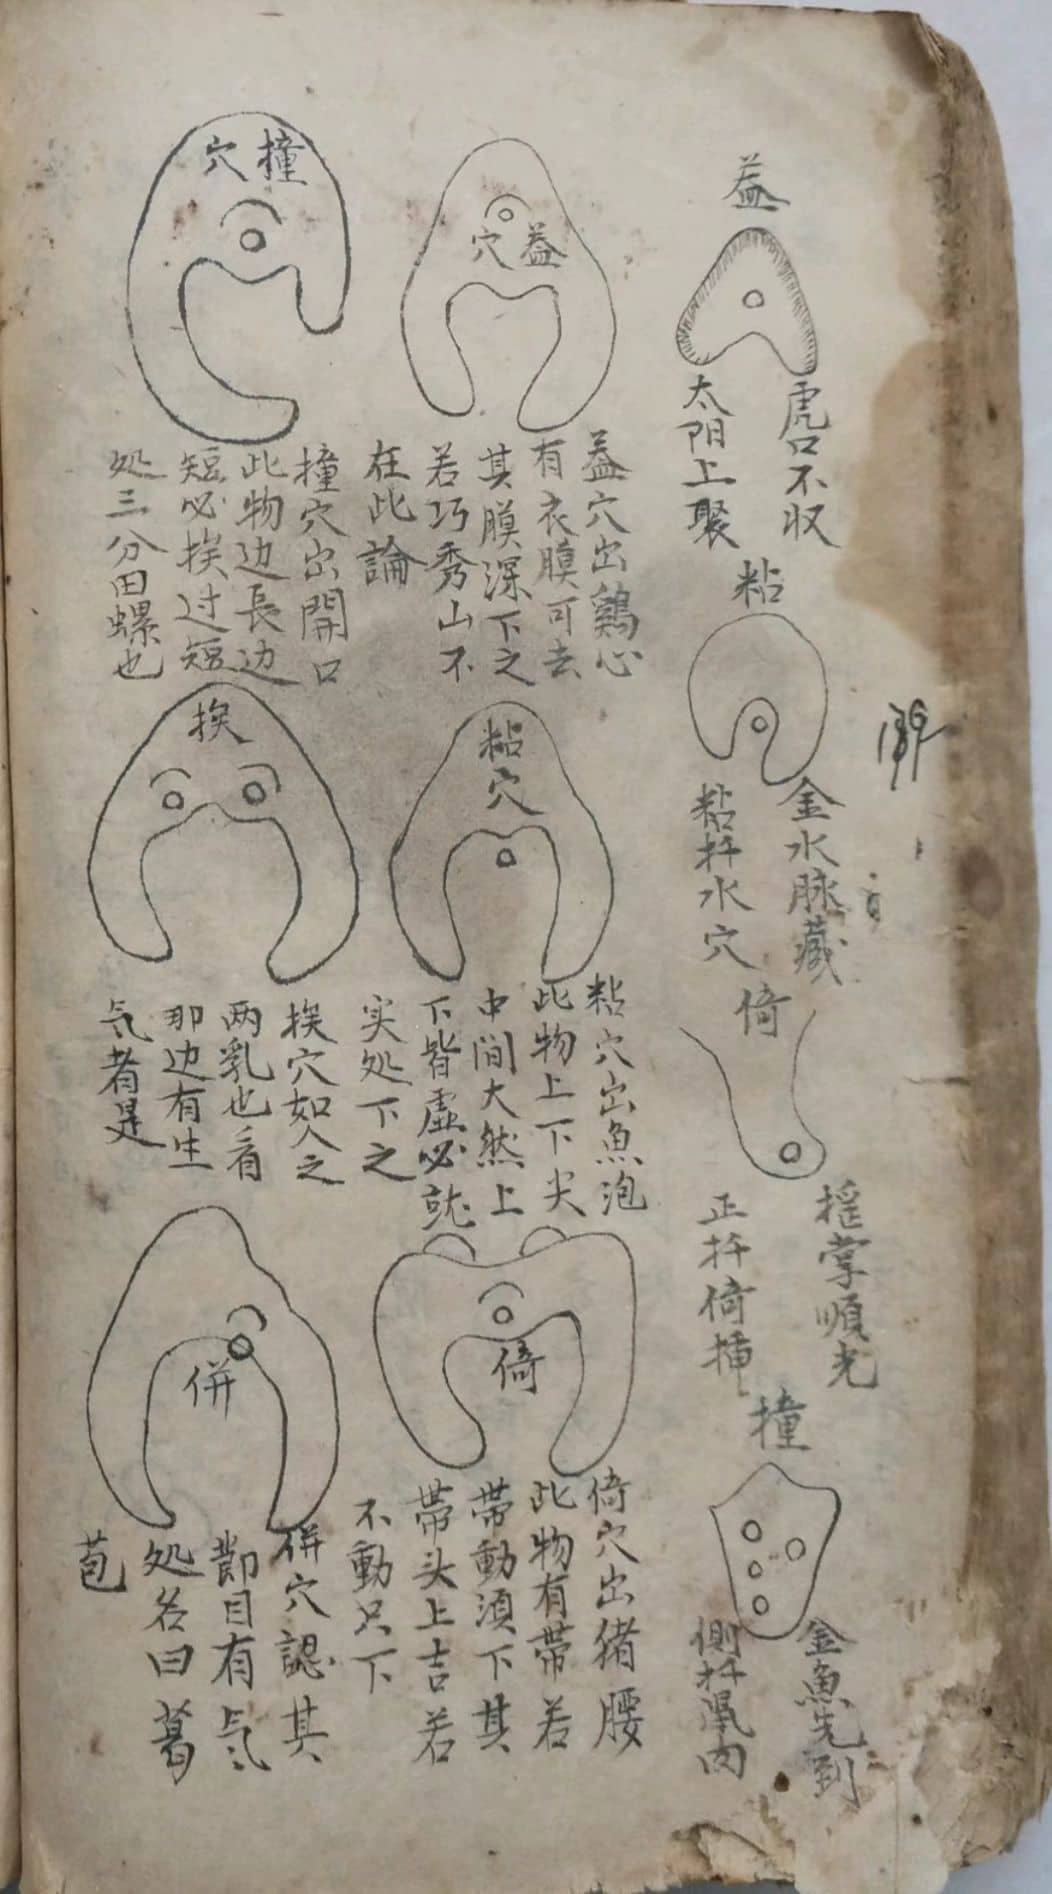 益
虎口不収
太阳上聚
粘
金水脉藏
粘扦水穴
倚
摇掌順光
正扦倚揷
撞
金魚先到
側扦凬肉
益穴
益穴出鷄心
有衣膜可去
其膜深下之
若巧秀山不
在此論
撞穴
撞穴出開口
此物边長边
短必挨过短
处三分田螺也
粘穴
粘穴出魚泡
此物上下尖
中间大然上
下皆虚必就
实处下之
挨
挨穴如人之
两乳也看
那边有生
气者是
倚
倚穴出猪腰
此物有带若
带動須下其
带头上吉若
不動只下
併
併穴認其
節目有气
处名曰葛
苞